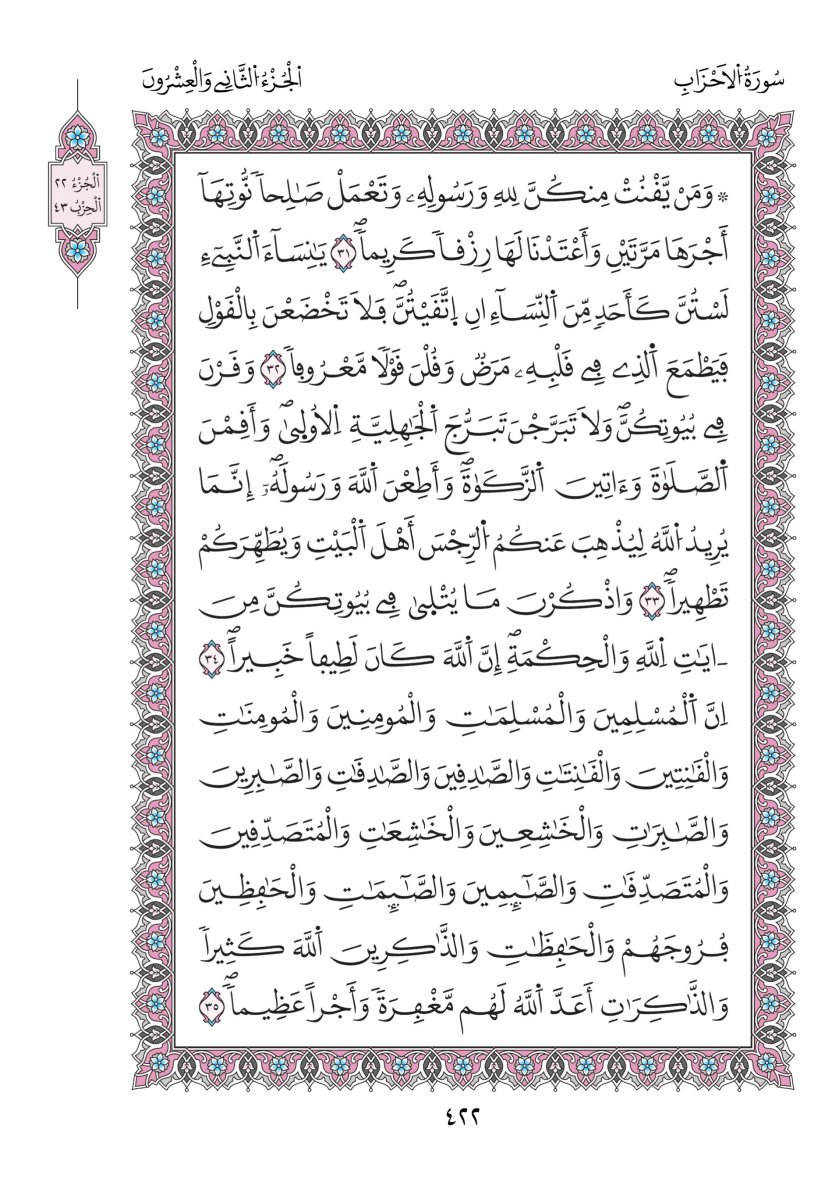 سُورَةُ اُلَاحْزَابِ
اُلْجُزْءُ اُلثَّانِے وَالْعِشْرُونَ
اَلْجُزْءُ ٢٢
اَلْحِزْبُ ٤٣
۞ وَمَنْ يَّفْنُتْ مِنكُنَّ لِلهِ وَرَسُولِهِۦ وَتَعْمَلْ صَٰلِحاٗ نُّوتِهَآ
أَجْرَهَا مَرَّتَيْنِ وَأَعْتَدْنَا لَهَا رِزْفاٗ كَرِيماٗۖ ٣١ يَٰنِسَآءَ اَ۬لنَّبِےٓءِ
لَسْتُنَّ كَأَحَدٖ مِّنَ اَ۬لنِّسَآءِ اِنِ اِ۪تَّفَيْتُنَّۖ فَلَا تَخْضَعْنَ بِالْفَوْلِ
فَيَطْمَعَ اَ۬لذِے فِے فَلْبِهِۦ مَرَضٞ وَفُلْنَ فَوْلاٗ مَّعْرُوفاٗ ٣٢ وَفَرْنَ
فِے بُيُوتِكُنَّۖ وَلَا تَبَرَّجْنَ تَبَرُّجَ اَ۬لْجَٰهِلِيَّةِ اِ۬لُاول۪ىٰۖ وَأَفِمْنَ
اَ۬لصَّلَوٰةَ وَءَاتِينَ اَ۬لزَّكَوٰةَۖ وَأَطِعْنَ اَ۬للَّهَ وَرَسُولَهُۥٓۖ إِنَّمَا
يُرِيدُ اُ۬للَّهُ لِيُذْهِبَ عَنكُمُ اُ۬لرِّجْسَ أَهْلَ اَ۬لْبَيْتِ وَيُطَهِّرَكُمْ
تَطْهِيراٗۖ ٣٣ وَاذْكُرْنَ مَا يُتْل۪ىٰ فِے بُيُوتِكُنَّ مِنَ
ـ۬ايَٰتِ اِ۬للَّهِ وَالْحِكْمَةِۖ إِنَّ اَ۬للَّهَ كَانَ لَطِيفاً خَبِيراًۖ ٣٤
اِنَّ اَ۬لْمُسْلِمِينَ وَالْمُسْلِمَٰتِ وَالْمُومِنِينَ وَالْمُومِنَٰتِ
وَالْفَٰنِتِينَ وَالْفَٰنِتَٰتِ وَالصَّٰدِفِينَ وَالصَّٰدِفَٰتِ وَالصَّٰبِرِينَ
وَالصَّٰبِرَٰتِ وَالْخَٰشِعِينَ وَالْخَٰشِعَٰتِ وَالْمُتَصَدِّفِينَ
وَالْمُتَصَدِّفَٰتِ وَالصَّٰٓئِمِينَ وَالصَّٰٓئِمَٰتِ وَالْحَٰفِظِينَ
فُرُوجَهُمْ وَالْحَٰفِظَٰتِ وَالذَّٰكِرِينَ اَ۬للَّهَ كَثِيراٗ
وَالذَّٰكِرَٰتِ أَعَدَّ اَ۬للَّهُ لَهُم مَّغْفِرَةٗ وَأَجْراً عَظِيماٗۖ ٣٥
٤٢٢